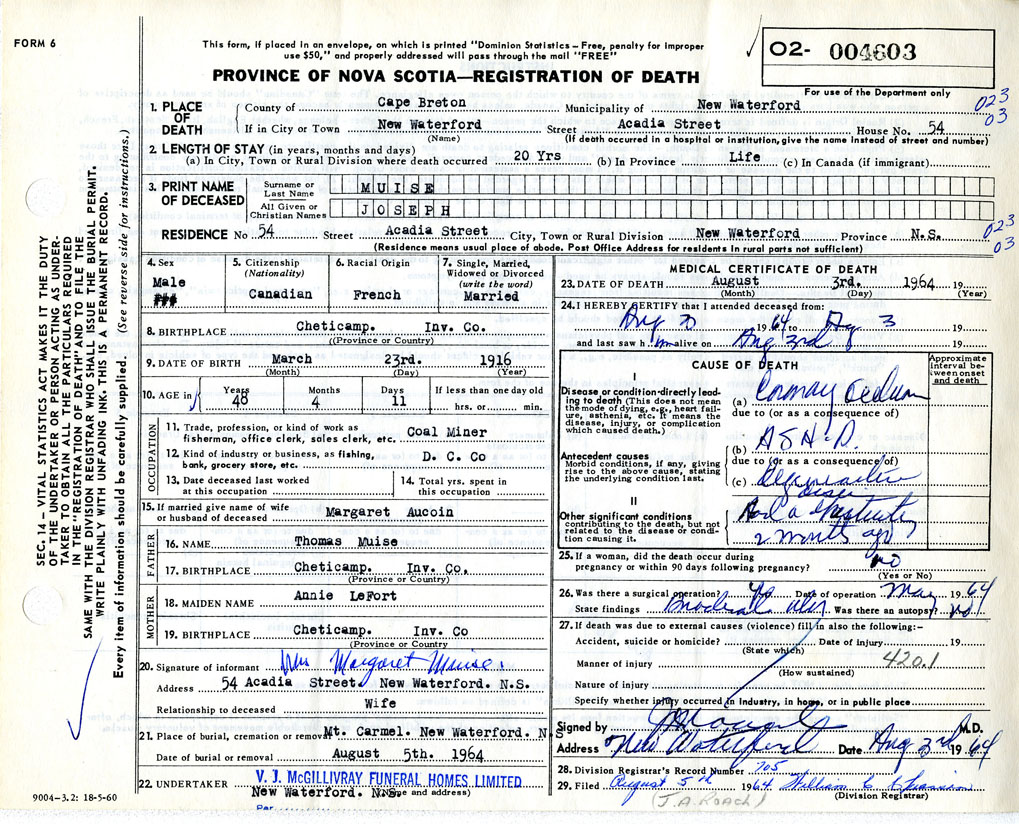 FORM 6
This form, if placed in an envelope, on which is printed "Dominion Statistics – Free, penalty for improper
use $50," and properly addressed will pass through the mail "FREE"
PROVINCE OF NOVA SCOTIA—REGISTRATION OF DEATH
02- 004603
For use of the Department only
023
03
SEC. 14—VITAL STATISTICS ACT MAKES IT THE DUTY
OF THE UNDERTAKER OR PERSON ACTING AS UNDER-
TAKER TO OBTAIN ALL THE PARTICULARS REQUIRED
IN THE "REGISTRATION OF DEATH" AND TO FILE THE
SAME WITH THE DIVISION REGISTRAR WHO SHALL ISSUE THE BURIAL PERMIT.
WRITE PLAINLY WITH UNFADING INK. THIS IS A PERMANENT RECORD.
Every item of information should be carefully supplied. (See reverse side for instructions.)
1. PLACE OF DEATH
County of Cape Breton Municipality of New Waterford
If in City or Town New Waterford Street Acadia Street House No. 54
(Name) (If death occurred in a hospital or institution, give the name instead of street and number)
2. LENGTH OF STAY (in years, months and days)
(a) In City, Town or Rural Division where death occurred 20 Yrs (b) In Province Life (c) In Canada (if immigrant)
3. PRINT NAME OF DECEASED
Surname or Last Name MUISE
All Given or Christian Names JOSEPH
RESIDENCE No 54 Street Acadia Street City, Town or Rural Division New Waterford Province N.S.
(Residence means usual place of abode. Post Office Address for residents in rural parts not sufficient)
023
03
4. Sex
Male
5. Citizenship
(Nationality)
Canadian
6. Racial Origin
French
7. Single, Married,
Widowed or Divorced
(write the word)
Married
8. BIRTHPLACE Cheticamp. Inv. Co.
((Province or Country)
9. DATE OF BIRTH March 23rd. 1916
(Month) (Day) (Year)
10. AGE in
Years Months Days If less than one day old
48 4 11 hrs. or min.
OCCUPATION
11. Trade, profession, or kind of work as
fisherman, office clerk, sales clerk, etc. Coal Miner
12. Kind of industry or business, as fishing,
bank, grocery store, etc. D. C. Co
13. Date deceased last worked
at this occupation
14. Total yrs. spent in
this occupation
15. If married give name of wife
or husband of deceased Margaret Aucoin
FATHER
16. NAME Thomas Muise
17. BIRTHPLACE Cheticamp. Inv. Co.
(Province or Country)
MOTHER
18. MAIDEN NAME Annie LeFort
19. BIRTHPLACE Cheticamp. Inv. Co
(Province or Country)
20. Signature of informant Mrs Margaret Muise.
Address 54 Acadia Street. New Waterford. N.S.
Relationship to deceased Wife
21. Place of burial, cremation or removal Mt. Carmel. New Waterford. N.S
Date of burial or removal August 5th. 1964
22. UNDERTAKER V. J. McGILLIVRAY FUNERAL HOMES LIMITED
New Waterford. N.S. (Name and address)
Per
9004—3.2: 18-5-60
MEDICAL CERTIFICATE OF DEATH
23. DATE OF DEATH August 3rd. 1964 19
(Month) (Day) (Year)
24. I HEREBY CERTIFY that I attended deceased from:
Aug 3 1964 to Aug 3 19
and last saw him alive on Aug 3rd 19
CAUSE OF DEATH
Approximate
Interval be-
tween onset
and death
I
Disease or condition directly lead-
ing to death (This does not mean
the mode of dying, e.g., heart fail-
ure, asthenia, etc. It means the
disease, injury, or complication
which caused death.)
(a)
due to (or as a consequence of)
(b) A S H D.
Antecedent causes
Morbid conditions, if any, giving
rise to the above cause, stating
the underlying condition last.
due to (or as a consequence of)
(c) Degenerative
II
Other significant conditions
contributing to the death, but not
related to the disease or condi-
tion causing it.
Had a
2 months ago
25. If a woman, did the death occur during
pregnancy or within 90 days following pregnancy? no
(Yes or No)
26. Was there a surgical operation? Yes Date of operation May 1964
State findings Duodenal ulcer Was there an autopsy? no
27. If death was due to external causes (violence) fill in also the following:—
Accident, suicide or homicide? Date of injury 19
(State which)
Manner of injury 420.1
(How sustained)
Nature of injury
Specify whether injury occurred in industry, in home, or in public place
Signed by M.D.
Address New Waterford Date Aug 3rd 1964
28. Division Registrar's Record Number 705
29. Filed August 5th 1964 William C
(J.A. ROACH) (Division Registrar)